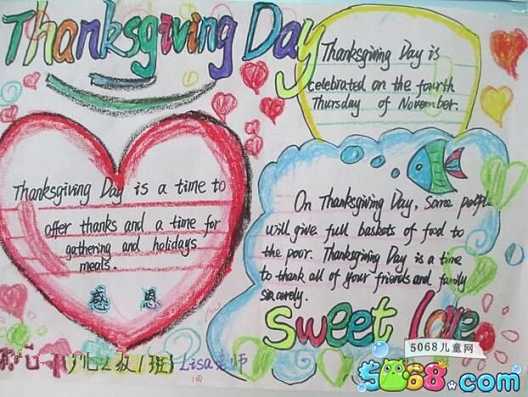 Thanksgiving Day
Thanksgiving Day is
celebrated on the fourth
Thursday of November.
Thanksgiving Day is a time to
offer thanks and a time for
gathering and holidays
meals.
感恩
On Thanksgiving Day, some people
will give full baskets of food to
the poor. Thanksgiving Day is a time
to thank all of your friends and family
sincerely.
Sweet Love
班) Lisa老师
5068儿童网
5068.com